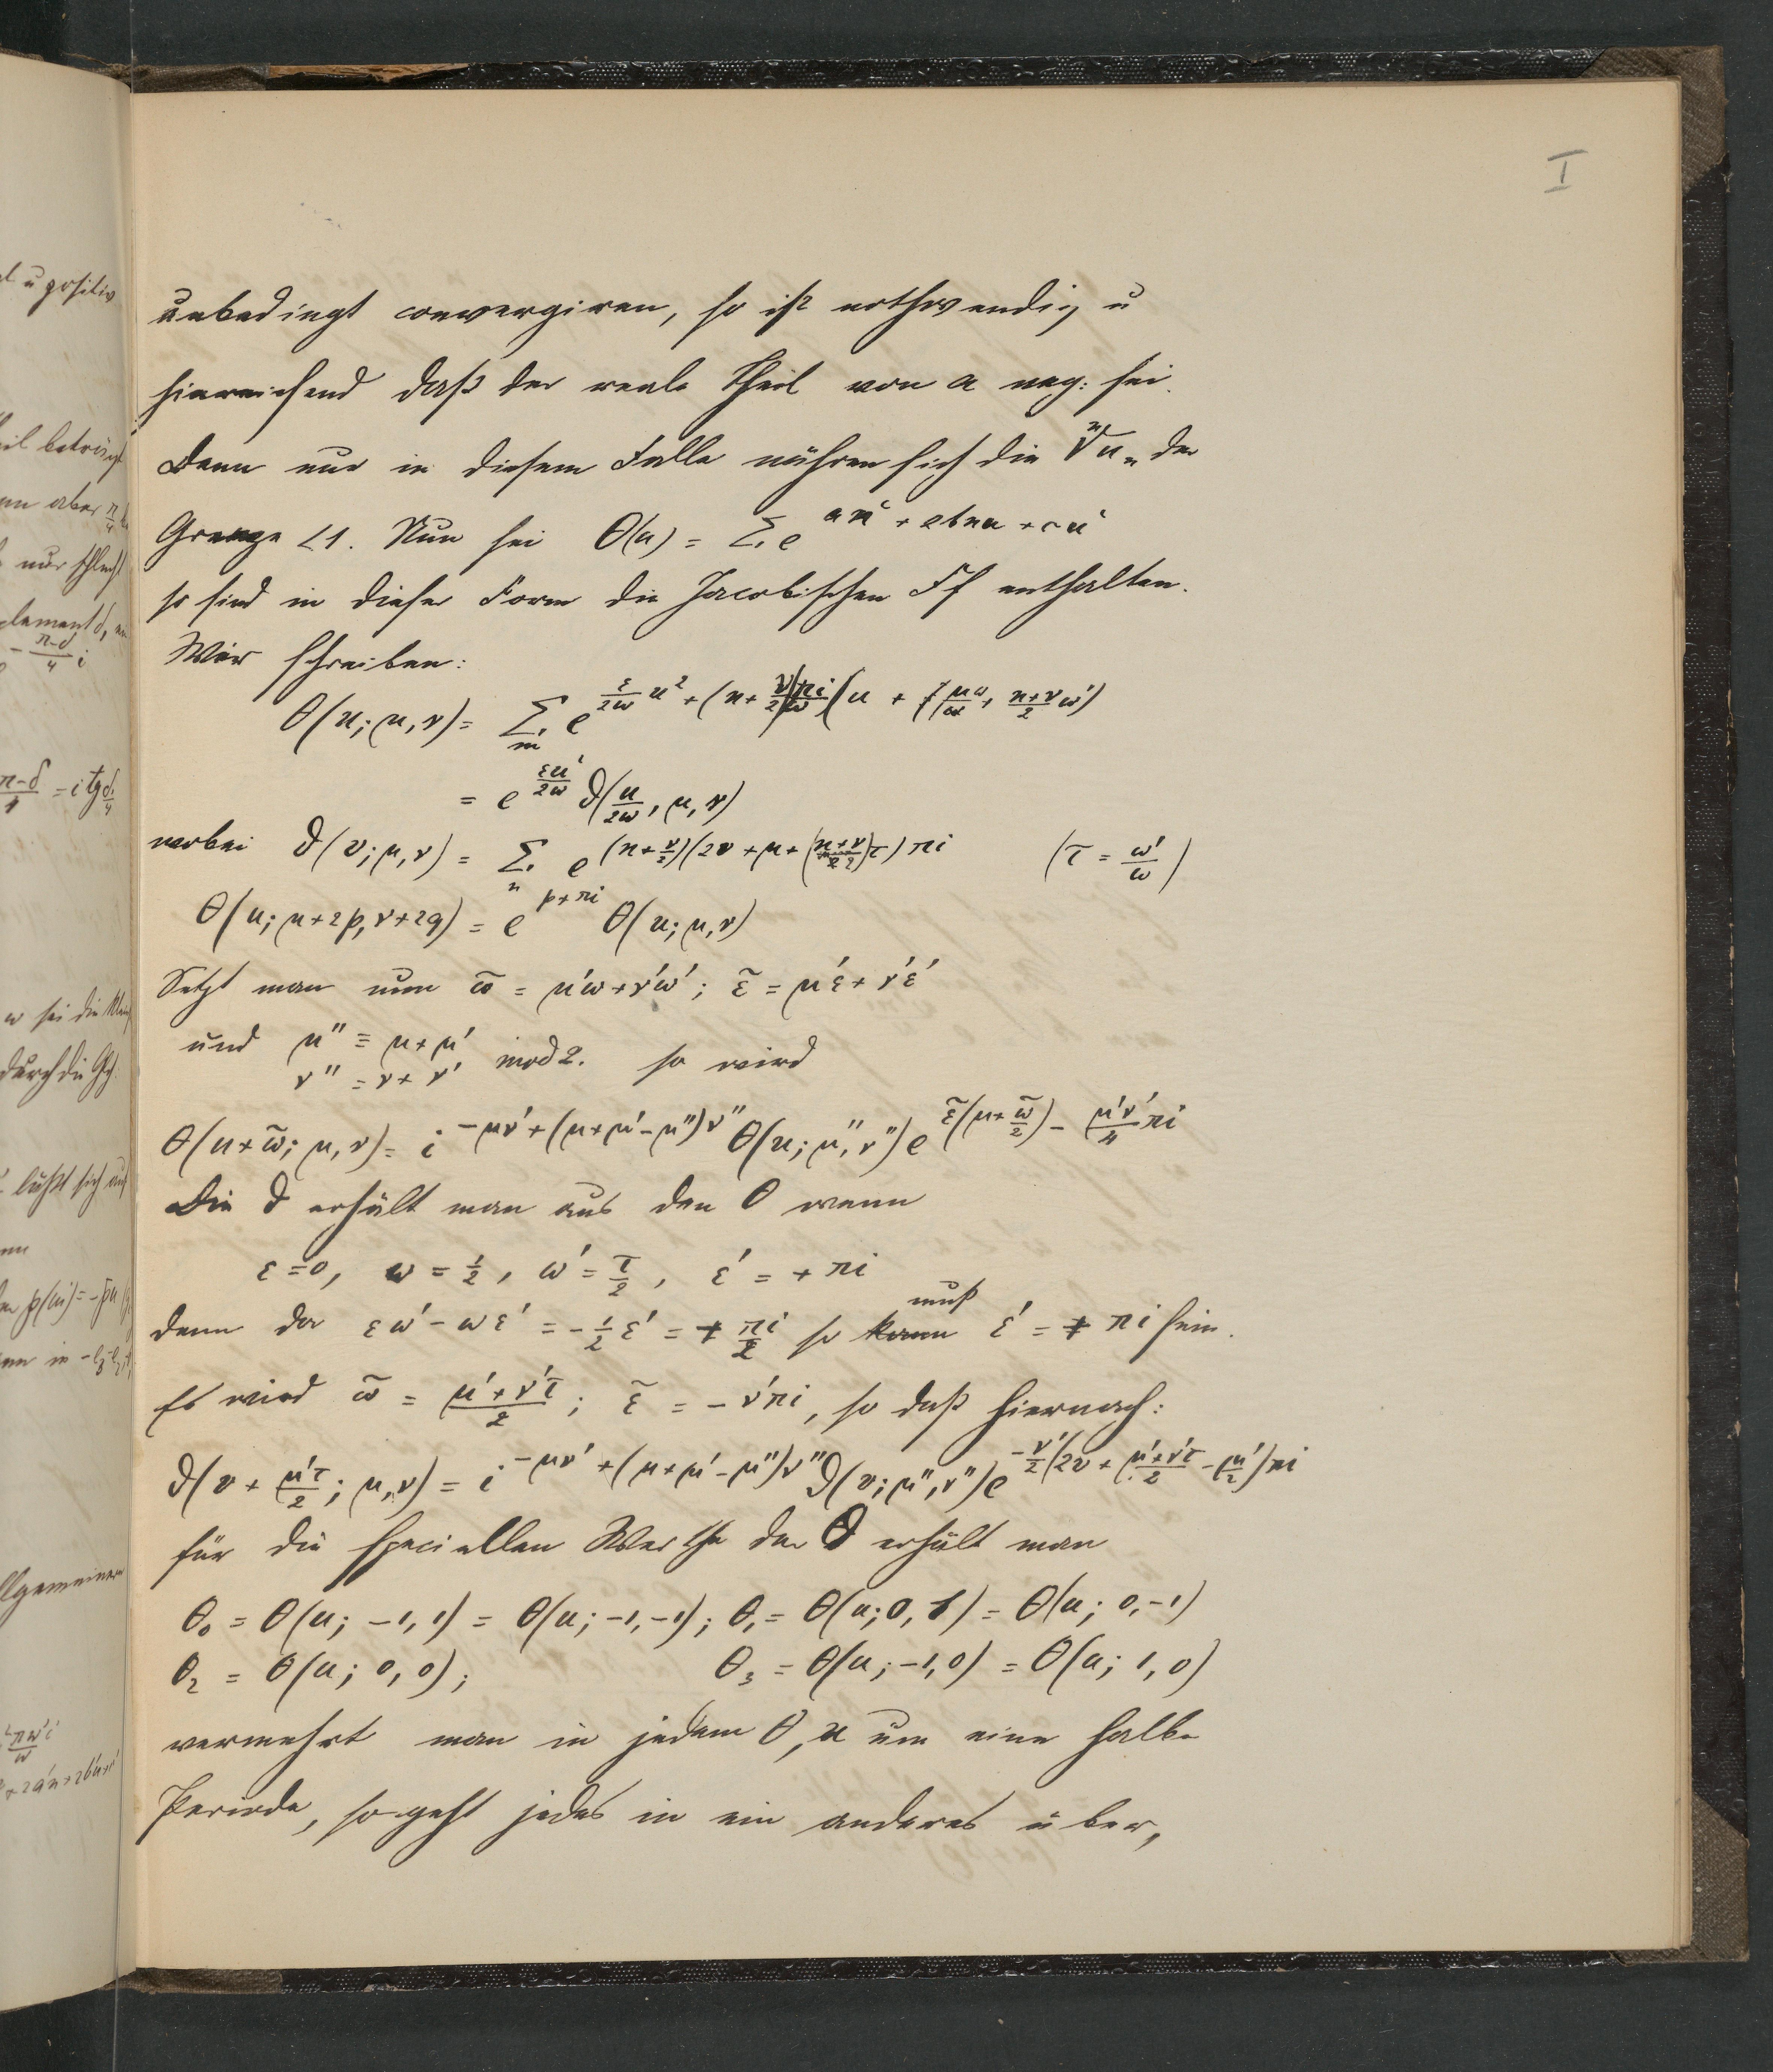 I
unbedingt convergiren, so ist nothwendig u
hinreichend daß der reale Theil von a neg: sei.
Denn nur in diesem Falle nähren sich die ⁿ√uₙ der
Grenze <1. Nun sei Θ(u) = Σ e^{an² + 2bnu + cu²}
so sind in dieser Form die Jacobischen Ff enthalten.
Wir schreiben:
Θ(u; μ, ν) = Σ e^{ε/2ω u² + (n + ν/2) πi/ω (u + μω + (n+ν)/2 ω')}
= e^{εu²/2ω} ϑ(u/2ω, μ, ν)
wobei ϑ(v; μ, ν) = Σₙ e^{(n + ν/2)(2v + μ + (n+ν/2)τ) πi} (τ = ω'/ω)
Θ(u; μ+2p, ν+2q) = e^{p+πi} Θ(u; μ, ν)
Setzt man nun ω̃ = μ'ω + ν'ω'; ε̃ = μ'ε + ν'ε'
und μ'' ≡ μ + μ' mod 2. so wird
ν'' = ν + ν'
Θ(u + ω̃; μ, ν) = i^{-μν' + (μ+μ'-μ'')ν''} Θ(u; μ'', ν'') e^{ε̃(u + ω̃/2) - μ'ν'/4 πi}
Die ϑ erhält man aus den Θ wenn
ε = 0, ω = 1/2, ω' = τ/2, ε' = + πi
denn da εω' - ωε' = - 1/2 ε' = + πi/2 so kann muß ε' = + πi sein.
Es wird ω̃ = (μ' + ν'τ)/2; ε̃ = - ν'πi, so daß hiernach:
ϑ(v + μ'τ/2; μ, ν) = i^{-μν' + (μ+μ'-μ'')ν''} ϑ(v; μ'', ν'') e^{-ν'/2 (2v + (μ'+ν'τ)/2 - μ'/2) πi}
für die speciellen Werthe der ϑ erhält man
Θ₀ = Θ(u; -1, 1) = Θ(u; -1, -1); Θ₁ = Θ(u; 0, 1) = Θ(u; 0, -1)
Θ₂ = Θ(u; 0, 0); Θ₃ = Θ(u; -1, 0) = Θ(u; 1, 0)
vermehrt man in jedem Θ, u um eine halbe
Periode, so geht jedes in ein anderes über,